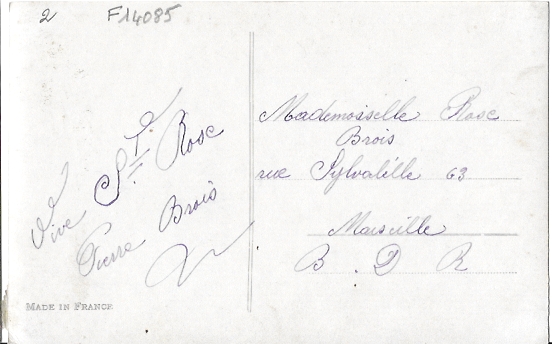 2
F14085
Vive Ste Rose
Pierre Brois
Mademoiselle Rose
Brois
rue Sylvabelle 63
Marseille
B. D R
MADE IN FRANCE